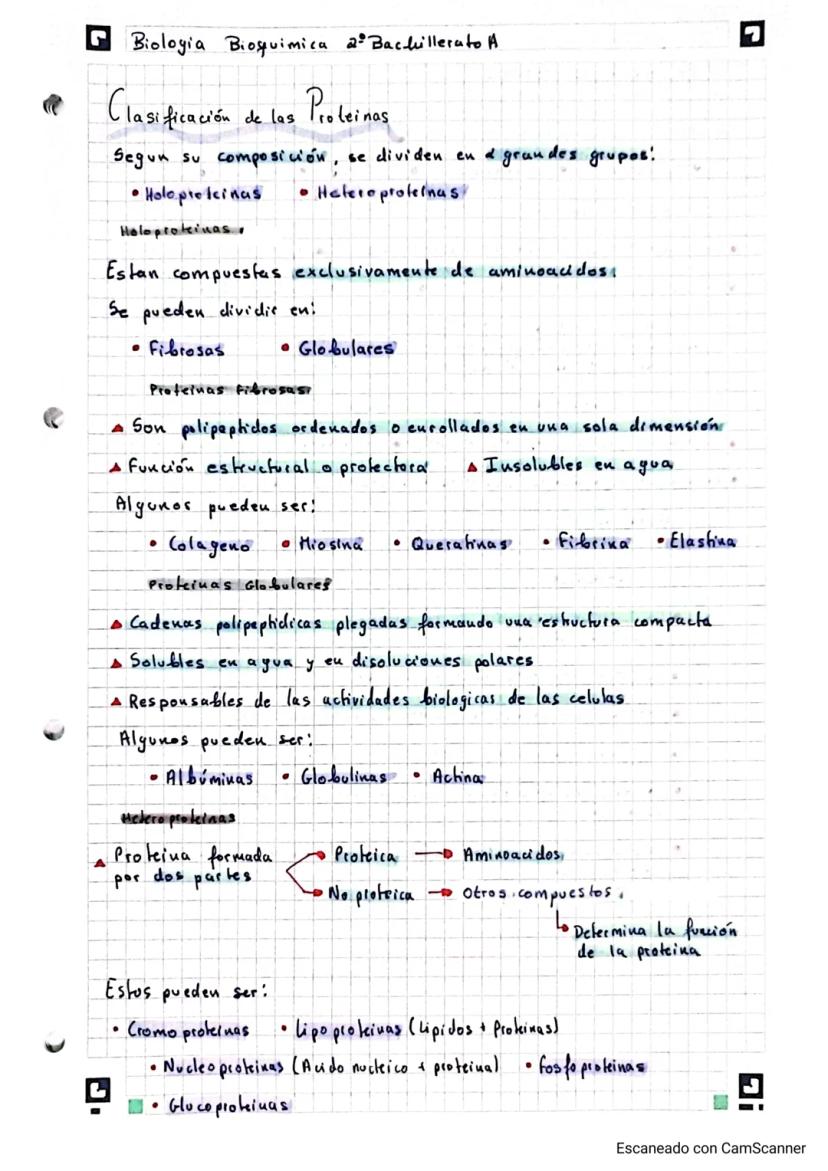 Biologia Bioquimica 2º Bachillerato A
Clasificación de las Proteinas
Segun su composición, se dividen en 2 grandes grupos:
• Holoproteinas • Heteroproteínas
Holoproteinas.
Estan compuestas exclusivamente de aminoacidos.
Se pueden dividir en:
• Fibrosas • Globulares
Proteinas Fibrosas
Son polipeptidos ordenados o enrollados en una sola dimensión
Función estructural o protectora Insolubles en agua
Algunos pueden ser:
• Colageno • Miosina • Queratinas • Fibrina • Elastina
Proteinas Globulares
Cadenas polipeptidicas plegadas formando una estructura compacta
Solubles en agua y en disoluciones polares
Responsables de las actividades biologicas de las celulas
Algunos pueden ser:
• Albúminas • Globulinas • Actina
Heteroproteinas
Proteina formada → Proteica → Aminoacidos
por dos partes → No proteica → Otros compuestos.
Determina la función
de la proteina
Estos pueden ser:
• Cromoproteinas • Lipoproteinas (Lipidos + Proteinas)
• Nucleoproteinas (Acido nucleico + proteina) • Fosfoproteinas
• Glucoproteinas
Escaneado con CamScanner